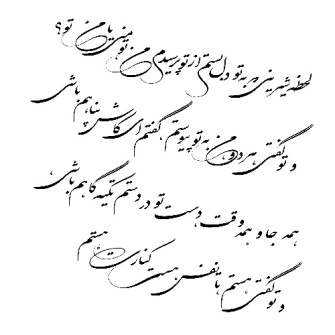 لحظه شیرینی که به تو دل بستم از تو پرسیدم من تو منی یا من تو؟
و تو گفتی هر دو، من به تو پیوستم، گفتم ای کاش پناهم باشی
همه جا و همه وقت، دست تو در دستم تکیه گاهم باشی،
و تو گفتی هستم، تا نفس هست کنارت هستم